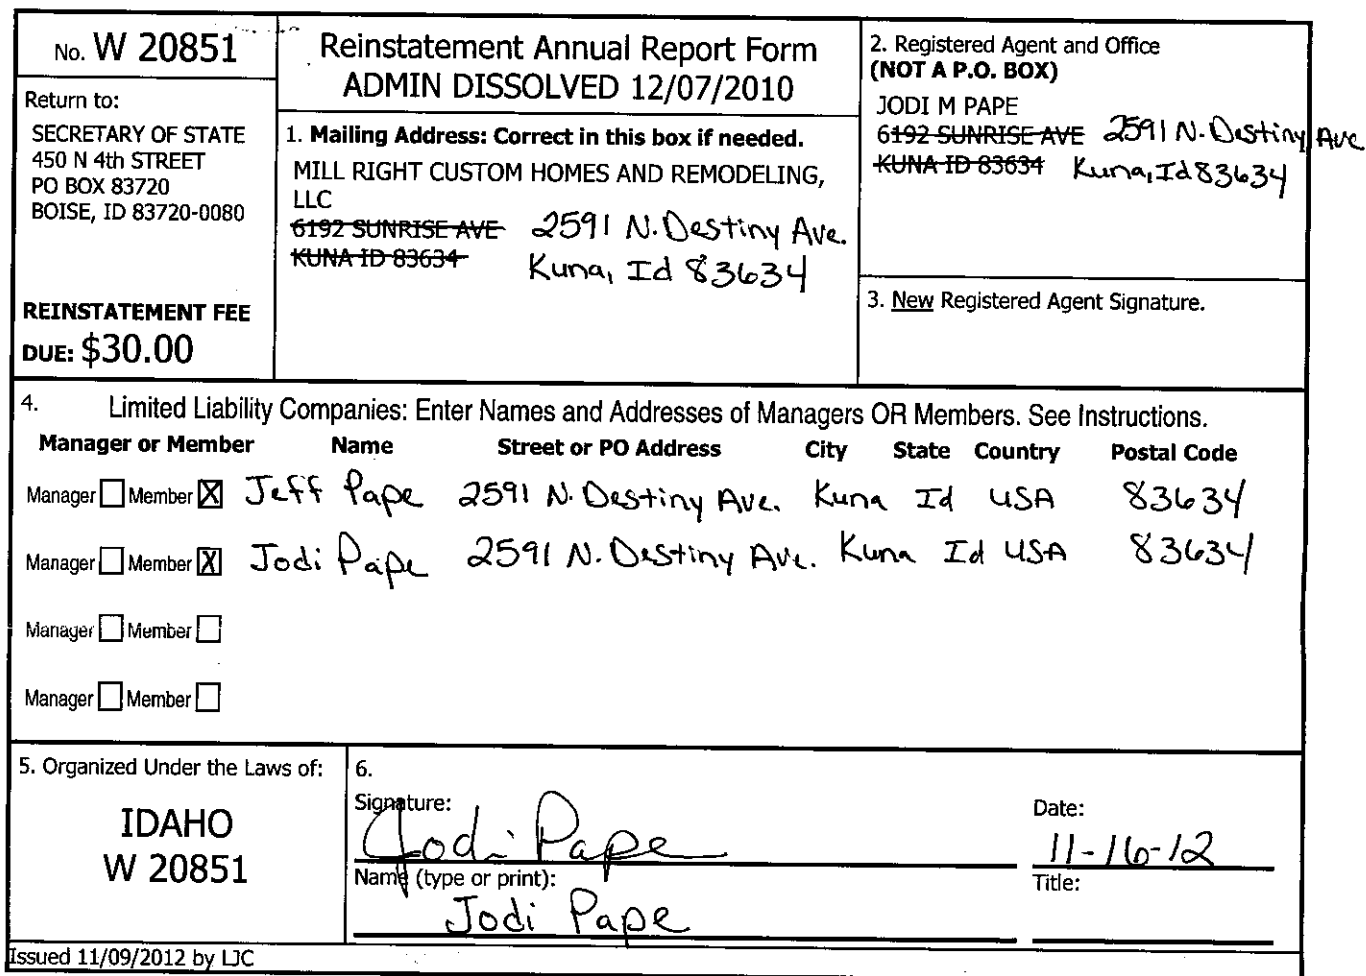 No. W 20851
Return to:
SECRETARY OF STATE
450 N 4th STREET
PO BOX 83720
BOISE, ID 83720-0080
REINSTATEMENT FEE
DUE: $30.00
Reinstatement Annual Report Form
ADMIN DISSOLVED 12/07/2010
1. Mailing Address: Correct in this box if needed.
MILL RIGHT CUSTOM HOMES AND REMODELING,
LLC
6192 SUNRISE AVE 2591 N. Destiny Ave.
KUNA ID 83634 Kuna, Id 83634
2. Registered Agent and Office
(NOT A P.O. BOX)
JODI M PAPE
6192 SUNRISE AVE 2591 N. Destiny Ave
KUNA ID 83634 Kuna, Id 83634
3. New Registered Agent Signature.
4. Limited Liability Companies: Enter Names and Addresses of Managers OR Members. See Instructions.
Manager or Member Name Street or PO Address City State Country Postal Code
Manager Member X Jeff Pape 2591 N. Destiny Ave. Kuna Id USA 83634
Manager Member X Jodi Pape 2591 N. Destiny Ave. Kuna Id USA 83634
Manager Member
Manager Member
5. Organized Under the Laws of:
IDAHO
W 20851
6.
Signature: Date:
Jodi Pape 11-16-12
Name (type or print): Title:
Jodi Pape
Issued 11/09/2012 by LJC